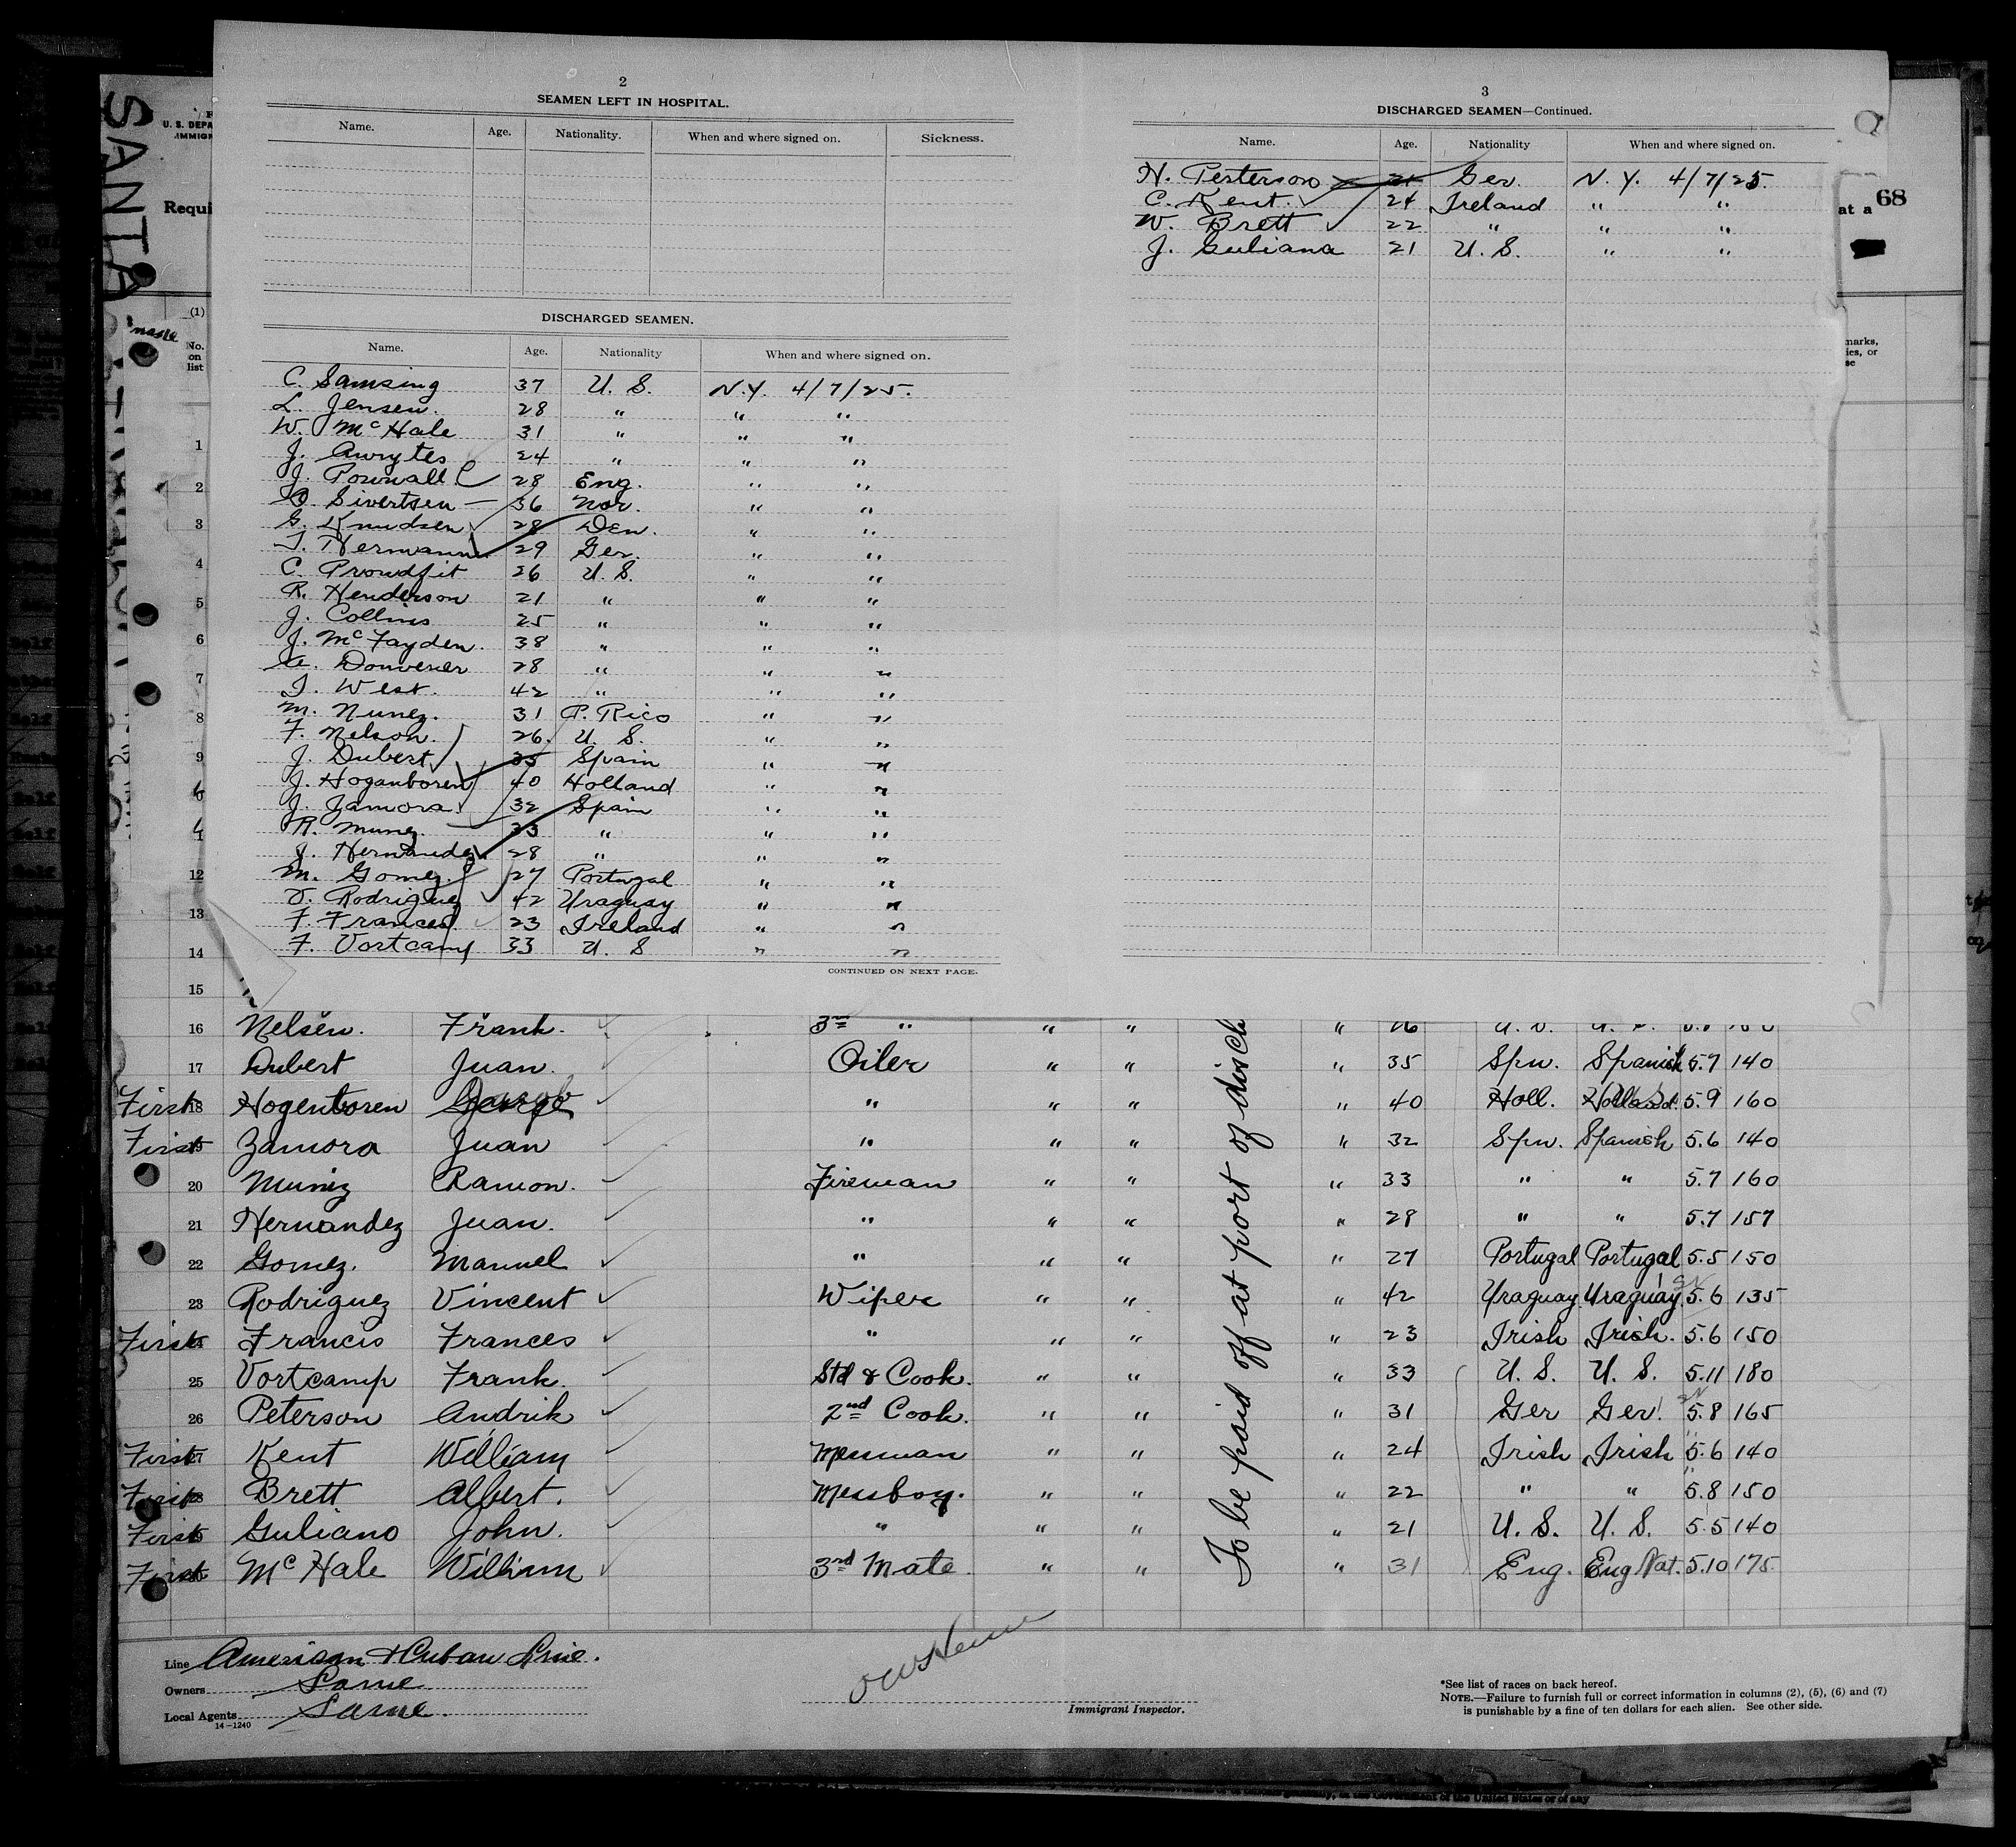 2
SEAMEN LEFT IN HOSPITAL.
Name. Age. Nationality. When and where signed on. Sickness.
DISCHARGED SEAMEN.
Name. Age. Nationality When and where signed on.
C. Samsing 37 U. S. N.Y. 4/7/25.
L. Jensen. 28 " " "
W. McHale 31 " " "
J. Awrytes 24 " " "
J. Pownall 28 Eng. " "
Sivertsen 36 Nor. " "
G. Knudsen 28 Den. " "
T. Hermann 29 Ger. " "
C. Prowdfit 26 U. S. " "
R. Henderson 21 " " "
J. Collins 25 " " "
J. McFayden. 38 " " "
Douvener 28 " " "
T. West. 42 " " "
M. Nunez. 31 P. Rico " "
F. Nelson. 26. U. S. " "
J. Dubert 35 Spain " "
J. Hoganboren 40 Holland " "
J. Zamora. 32 Spain " "
R. Munez. 33 " " "
J. Hernandez 28 " " "
M. Gomez. 27 Portugal " "
V. Rodriguez 42 Uraguay " "
F. Frances. 23 Ireland " "
F. Vortcamp 33 U. S " "
CONTINUED ON NEXT PAGE.
3
DISCHARGED SEAMEN—Continued.
Name. Age. Nationality When and where signed on.
H. Pesterson Ger. N. Y. 4/7/25.
C. Kent. 24 Ireland " "
W. Brett 22 " " "
J. Guliana 21 U. S. " "
SANTA
U. S. DEPA
IMMIGR
Requi
at a 68
marks,
ies, or
se
name
(1)
No.
on
list
1
2
3
4
5
6
7
8
9
12
13
14
15
16 Nelsen. Frank. 3rd " " " " 26 U. S. U. S.
17 Dubert Juan. Oiler " " " 35 Spn. Spanish 5.7 140
First 18 Hogenboren " " " " 40 Holl. Holland. 5.9 160
First 19 Zamora Juan " " " " 32 Spn. Spanish 5.6 140
20 Muniz Ramon. Fireman " " " 33 " " 5.7 160
21 Hernandez Juan. " " " " 28 " " 5.7 157
22 Gomez. Manuel " " " " 27 Portugal Portugal 5.5 150
23 Rodriguez Vincent Wiper " " " 42 Uraguay. Uraguay. 5.6 135
First Francis Frances " " " " 23 Irish Irish. 5.6 150
25 Vortcamp Frank. Std & Cook. " " " 33 U. S. U. S. 5.11 180
26 Peterson Andrik 2nd Cook. " " " 31 Ger Ger. 5.8 165
First 27 Kent William Messman " " " 24 Irish Irish 5.6 140
First 28 Brett Albert. Messboy. " " " 22 " " 5.8 150
First Guliano John. " " " " 21 U. S. U. S. 5.5 140
First McHale William 3rd Mate. " " " 31 Eng. Eng Nat. 5.10 175.
To be paid off at port of disch
Line American & Cuban Line.
Owners Same
Local Agents Same.
14—1240
Immigrant Inspector.
*See list of races on back hereof.
NOTE.—Failure to furnish full or correct information in columns (2), (5), (6) and (7)
is punishable by a fine of ten dollars for each alien. See other side.